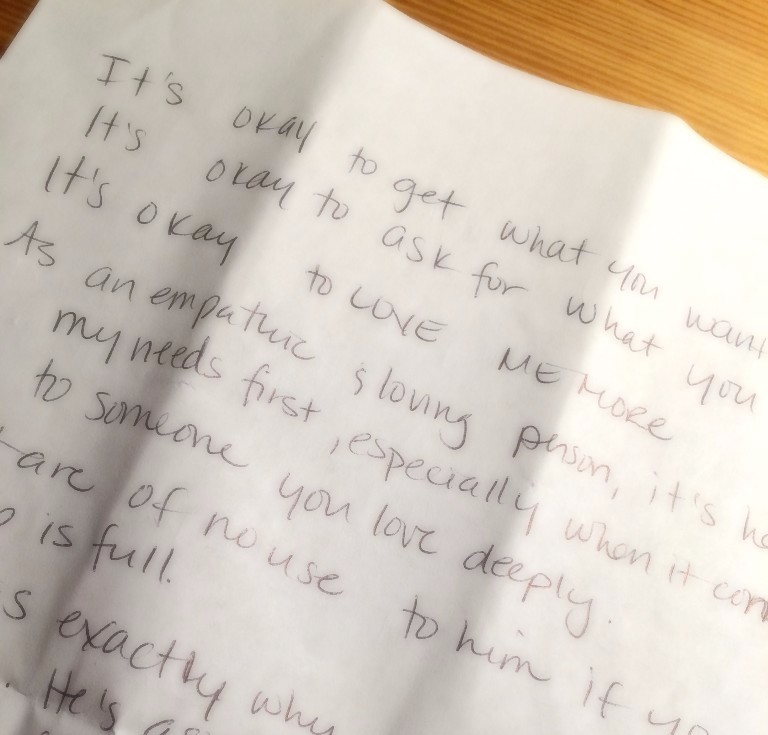 It's okay to get what you want
It's okay to ask for what you
It's okay to LOVE ME MORE
As an empathic & loving person, it's
my needs first, especially when it
to someone you love deeply.
are of no use to him if
is full.
exactly why
He's